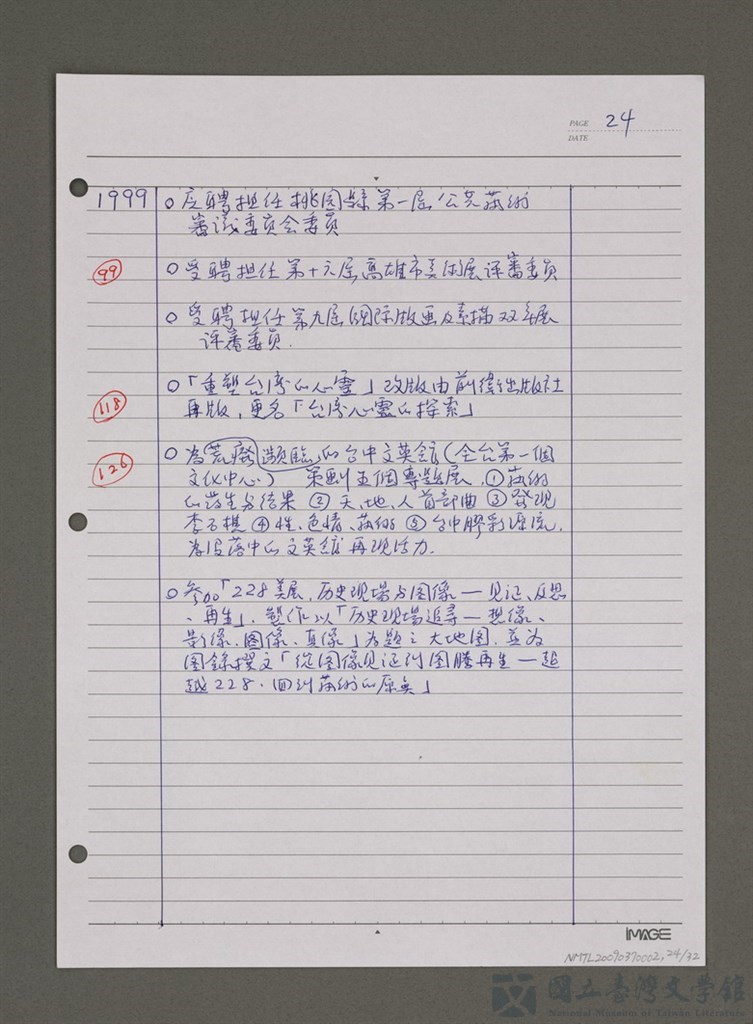 PAGE 24
DATE
1999 ○受聘担任桃園縣第一屆公共藝術
審議委員会委員
99 ○受聘担任第十六屆高雄市美術展評審委員
○受聘担任第九屆國际版画及素描双年展
評審委員.
118 ○「重塑台湾的心靈」改版由前衛出版社
再版,更名「台湾心靈的探索」
126 ○為荒廢瀕臨的台中文英舘(全台第一個
文化中心) 策劃五個專題展,①藝術
的誕生与結果②天、地、人首部曲③發现
李石樵④性、色情、藝術⑤台中膠彩源流,
為沒落中的文英舘再现活力.
○參加「228美展,历史现場与图像—见证、反思
、再生」,製作以「历史现場追尋—想像、
影像、圖像、真像」為題之大地图,並為
图錄撰文「從图像见证到图騰再生—超
越228.回到藝術的原奌」
IMAGE
NMTL20090370002,24/32
國立臺灣文學館
National Museum of Taiwan Literature